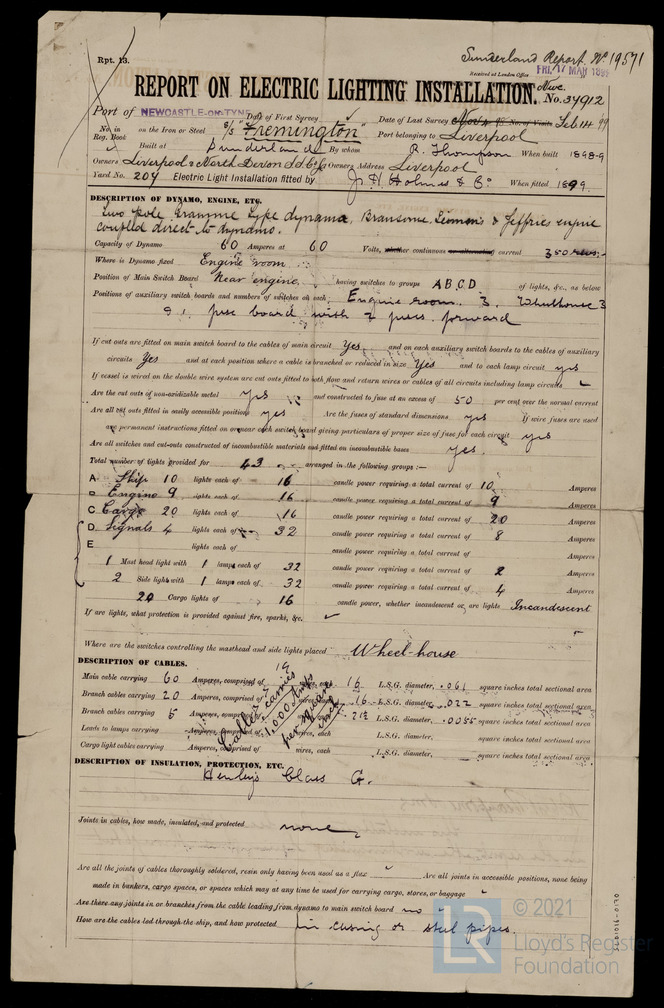 Sunderland Report No 19571
Rpt. 13.
Received at London Office
FRI. 17 MAR 1899
REPORT ON ELECTRIC LIGHTING INSTALLATION.
Nwc. No. 34912
Port of NEWCASTLE-ON-TYNE Date of First Survey Date of Last Survey Feb 14 99
No. in Reg. Book on the Iron or Steel S/S "Fremington" Port belonging to Liverpool
Built at Sunderland By whom R. Thompson When built 1898-9
Owners Liverpool & North Devon Owners Address Liverpool
Yard No. 204 Electric Light Installation fitted by J. H. Holmes & Co When fitted 1899.
DESCRIPTION OF DYNAMO, ENGINE, ETC.
Two pole Gramme type dynamo, Bransome, Siemens & Jeffries engine
coupled direct to dynamo.
Capacity of Dynamo 60 Amperes at 60 Volts, whether continuous or alternating current 350 revs.
Where is Dynamo fixed Engine room
Position of Main Switch Board Near engine having switches to groups A B C D of lights, &c., as below
Positions of auxiliary switch boards and numbers of switches on each Engine room 3. Wheelhouse 3
& 1 fuse board with 2 fuses forward
If cut outs are fitted on main switch board to the cables of main circuit Yes and on each auxiliary switch board to the cables of auxiliary
circuits Yes and at each position where a cable is branched or reduced in size Yes and to each lamp circuit yes
If vessel is wired on the double wire system are cut outs fitted to both flow and return wires or cables of all circuits including lamp circuits
Are the cut outs of non-oxidizable metal yes and constructed to fuse at an excess of 50 per cent over the normal current
Are all cut outs fitted in easily accessible positions yes Are the fuses of standard dimensions yes If wire fuses are used
are permanent instructions fitted on or near each switch board giving particulars of proper size of fuse for each circuit yes
Are all switches and cut-outs constructed of incombustible materials and fitted on incombustible bases yes.
Total number of lights provided for 43 arranged in the following groups :—
A Ship 10 lights each of 16 candle power requiring a total current of 10 Amperes
B Engine 9 lights each of 16 candle power requiring a total current of 9 Amperes
C Cargo 20 lights each of 16 candle power requiring a total current of 20 Amperes
D Signals 4 lights each of 32 candle power requiring a total current of 8 Amperes
E lights each of candle power requiring a total current of Amperes
1 Mast head light with 1 lamps each of 32 candle power requiring a total current of 2 Amperes
2 Side light with 1 lamps each of 32 candle power requiring a total current of 4 Amperes
20 Cargo lights of 16 candle power, whether incandescent or arc lights Incandescent
If arc lights, what protection is provided against fire, sparks, &c.
Where are the switches controlling the masthead and side lights placed Wheel-house
DESCRIPTION OF CABLES.
Main cable carrying 60 Amperes, comprised of 19 wires, each 16 L.S.G. diameter, .061 square inches total sectional area
Branch cables carrying 20 Amperes, comprised of wires, each 16 L.S.G. diameter, .022 square inches total sectional area
Branch cables carrying 5 Amperes, comprised of wires, each L.S.G. diameter, .0055 square inches total sectional area
Leads to lamps carrying Amperes, comprised of wires, each L.S.G. diameter, square inches total sectional area
Cargo light cables carrying Amperes, comprised of wires, each L.S.G. diameter, square inches total sectional area
Cables carries
1,000 Amps
per square
inch
DESCRIPTION OF INSULATION, PROTECTION, ETC.
Henley's Class G.
Joints in cables, how made, insulated, and protected none
Are all the joints of cables thoroughly soldered, resin only having been used as a flux Are all joints in accessible positions, none being
made in bunkers, cargo spaces, or spaces which may at any time be used for carrying cargo, stores, or baggage
Are there any joints in or branches from the cable leading from dynamo to main switch board no
How are the cables led through the ship, and how protected in casing or steel pipes.
LR
© 2021
Lloyd's Register
Foundation